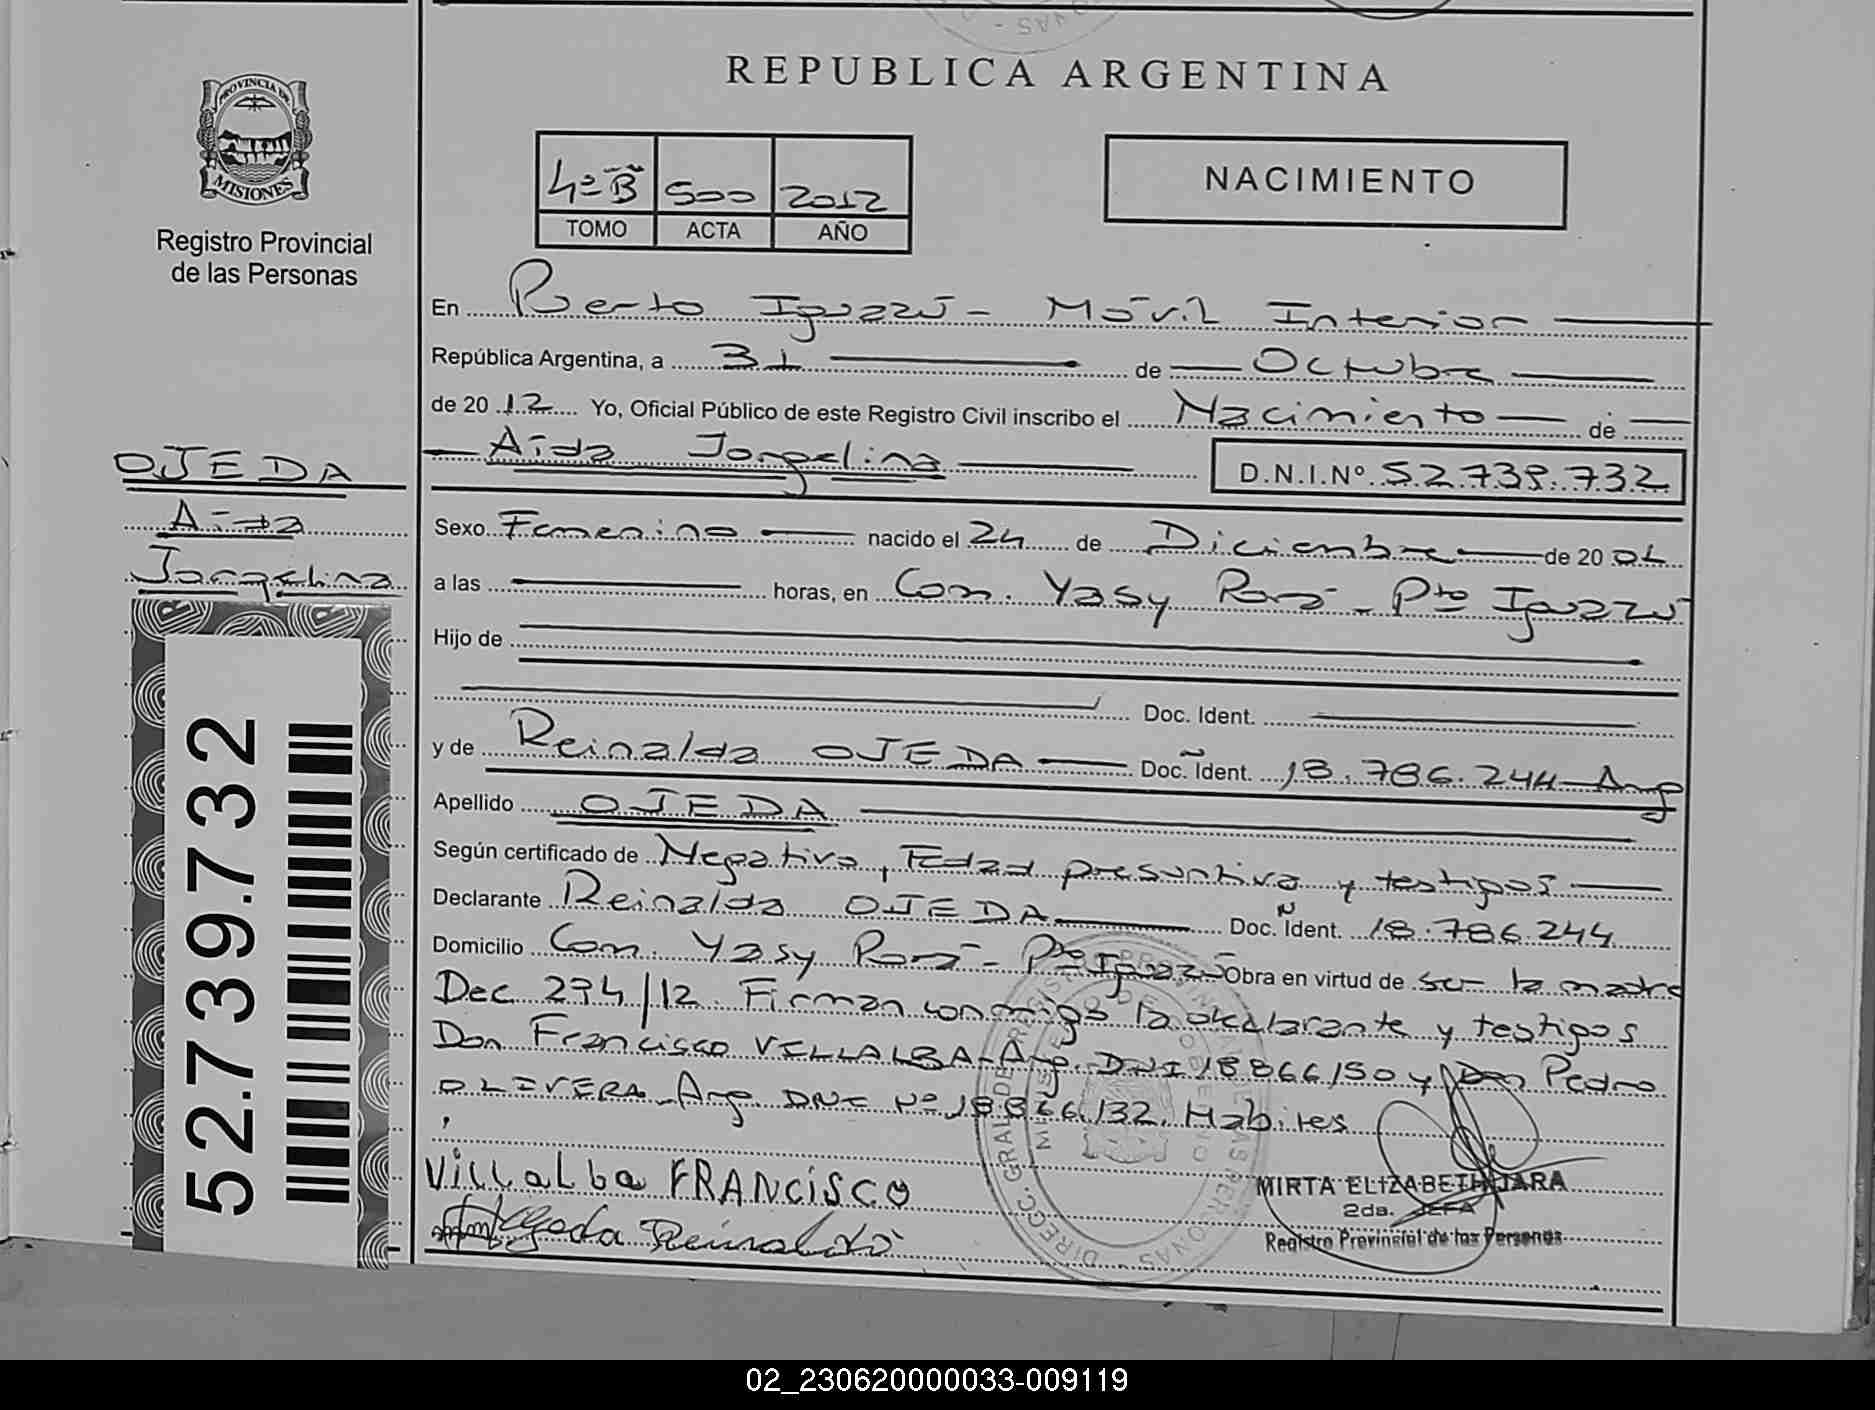 REPUBLICA ARGENTINA
PROVINCIA DE
MISIONES
Registro Provincial
de las Personas
4º "B" 500 2012
TOMO ACTA AÑO
NACIMIENTO
En Puerto Iguazú - Móvil Interior
República Argentina, a 31 de Octubre
de 2012 Yo, Oficial Público de este Registro Civil inscribo el Nacimiento de
Aída Jorgelina D.N.I.Nº 52.739.732
OJEDA
Aída
Jorgelina
52.739.732
Sexo Femenino nacido el 24 de Diciembre de 20
a las horas, en Com. Yasy Porá - Pto Iguazú
Hijo de
Doc. Ident.
y de Reinalda OJEDA Doc. Ident. 18.786.244 - Arg
Apellido OJEDA
Según certificado de Negativa, Edad presuntiva y testigos
Declarante Reinalda OJEDA Doc. Ident. 18.786.244
Domicilio Com. Yasy Porá - Pto Iguazú Obra en virtud de ser la madre
Dec 274/12. Firman conmigo la declarante y testigos
Don Francisco VILLALBA - Arg. DNI 18866150 y Don Pedro
OLIVERA - Arg. DNI Nº 18866132. Hábiles
VillalBa FRANCiSCO
Reinalda
MIRTA ELIZABETH JARA
2da. JEFA
Registro Provincial de las Personas
02_230620000033-009119